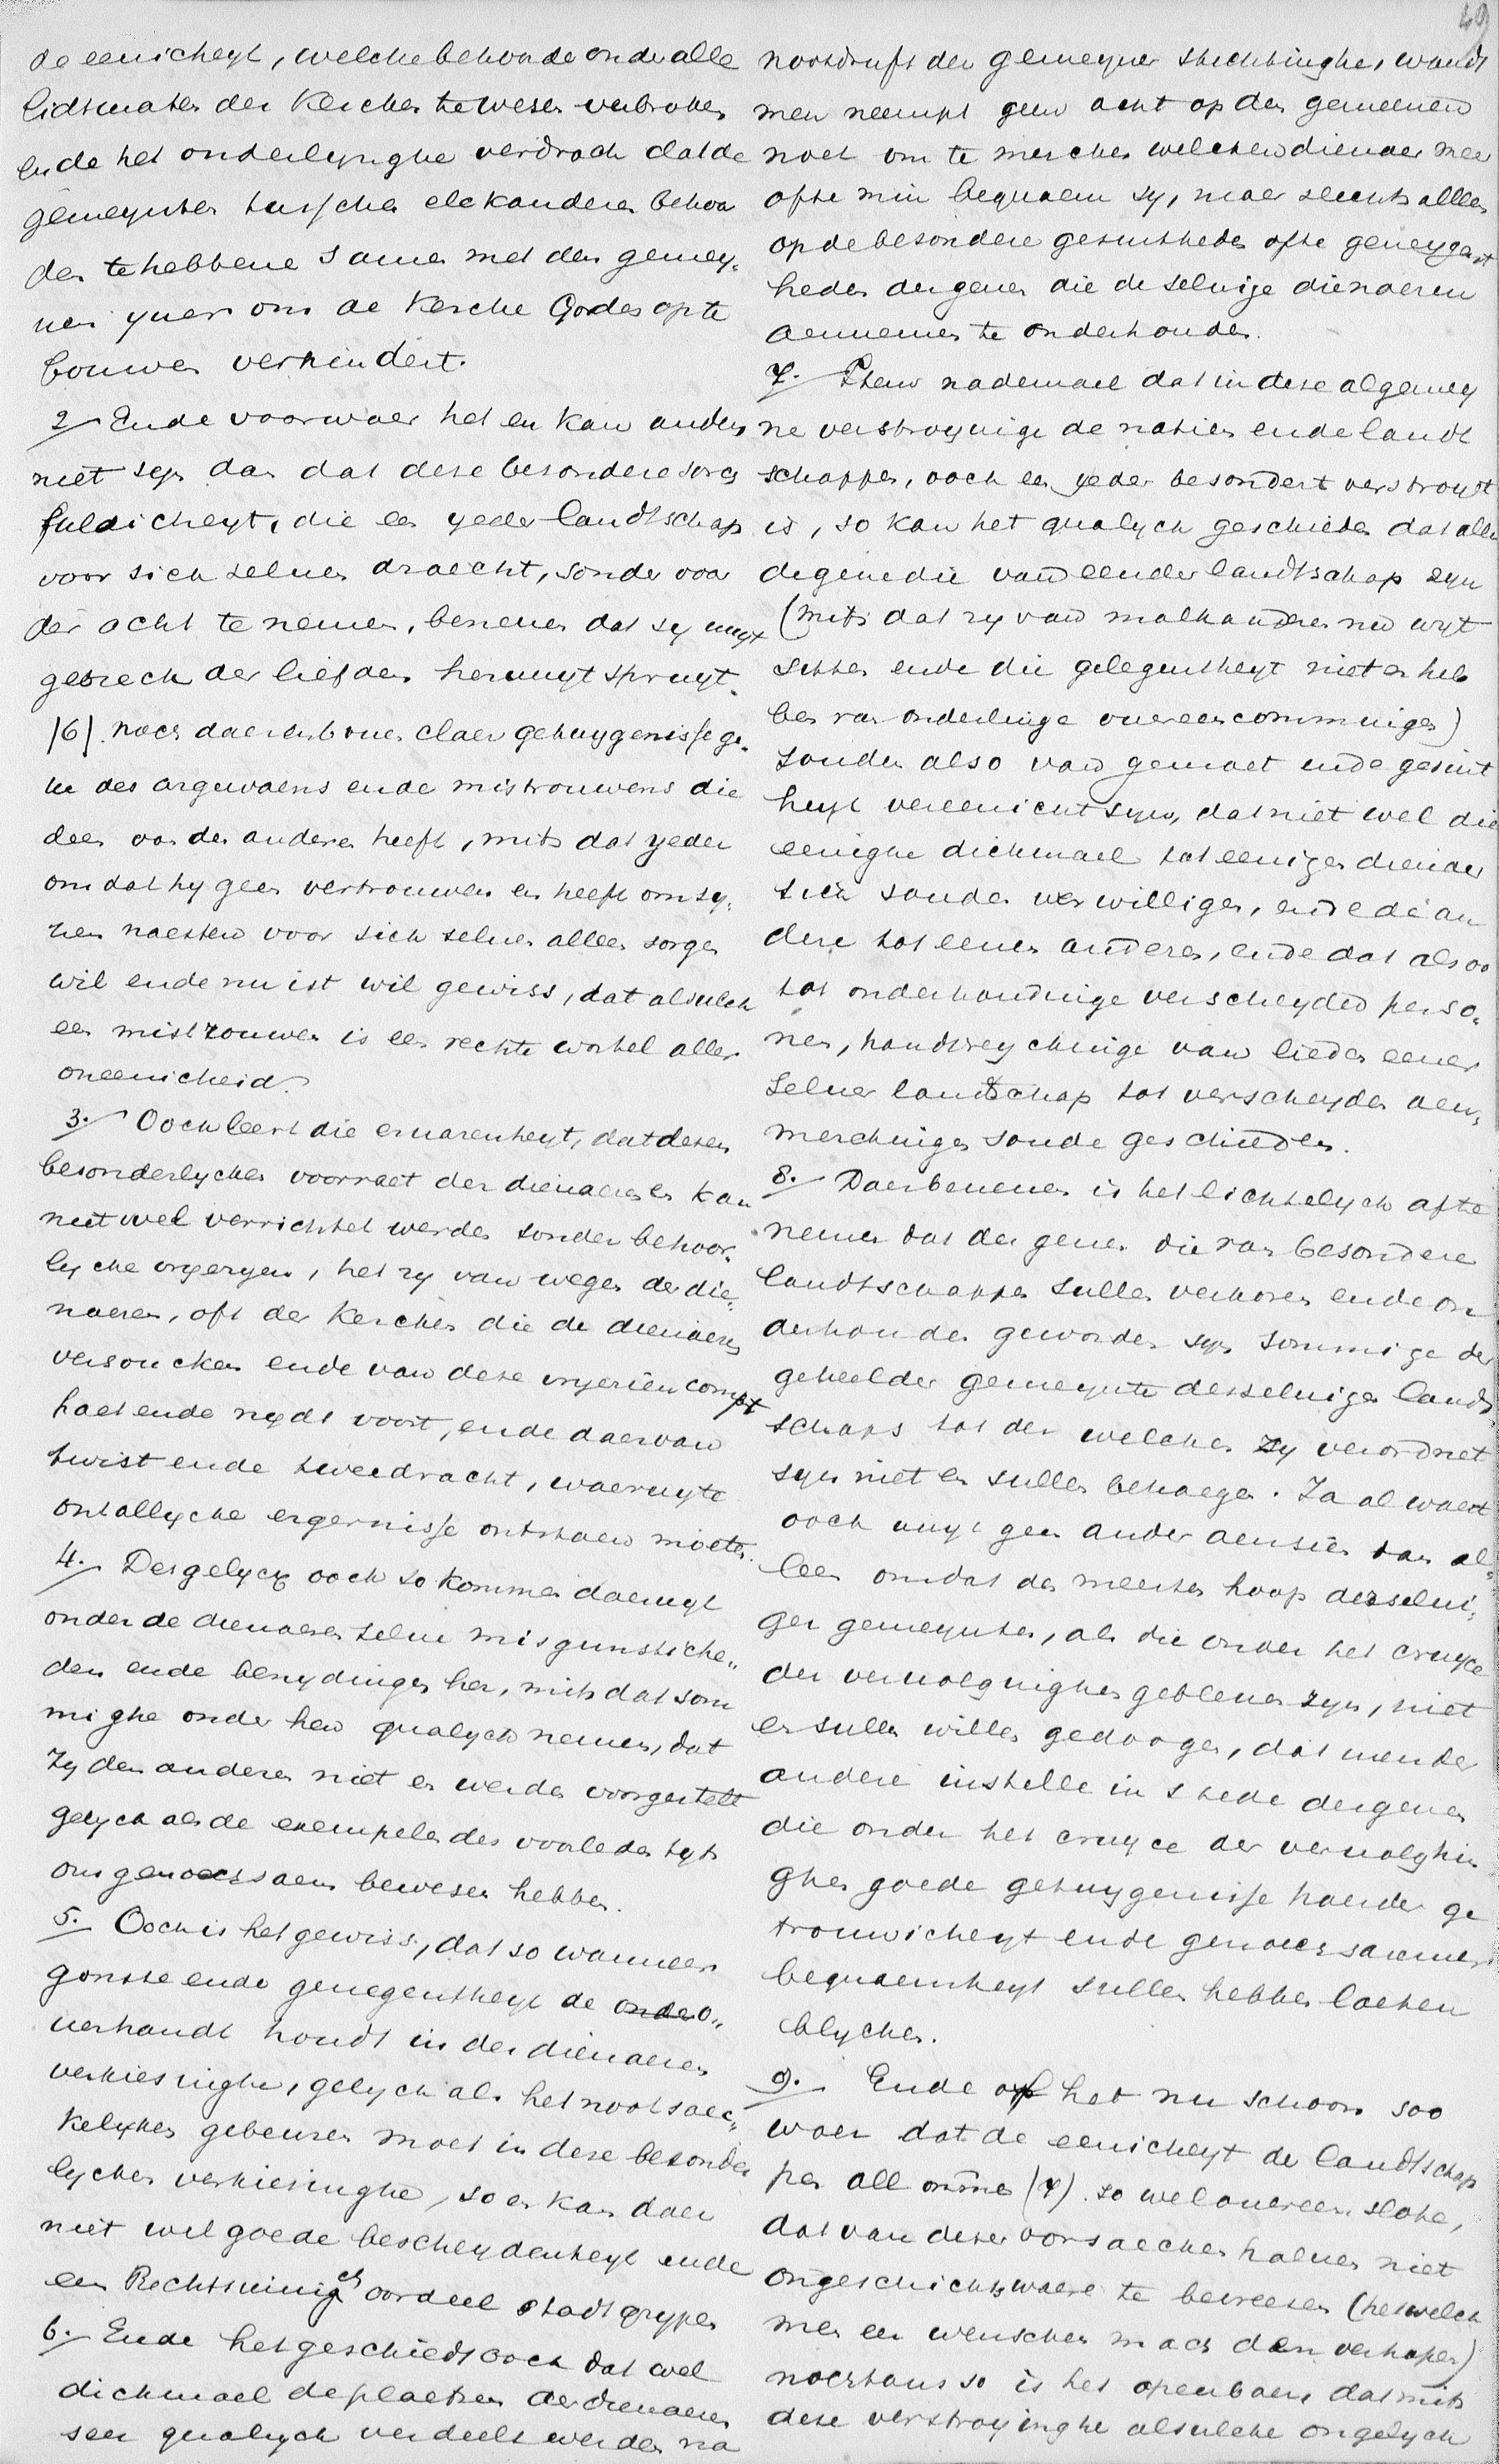 49
de eenicheyt, welche behoorde onder alle
lidtmaten der Kercken te wesen verbroken
ende het onderlynghe verdrach dat de
gemeynten tusschen elckanderen behoor
den te hebbene samen met den gemey,
nen yver om de Kercke Godes op te
bouwen verhindert.
2. Ende voorwaer het en kan anders
niet syn dan dat dese besondere sorg
fuldicheyt, die een yeder landtschap
voor sich selven draecht, sonder voor
der acht te nemen, benevens dat sy uuyt
gebreck der liefden heruuyt spruyt.
|6|. noch daerenboven claer getuygenisse ge,
ve des argwaens ende mistrouwens die
deen van den anderen heeft, mits dat yeder
omdat hy geen vertrouwen en heeft om sy,
nen naesten voor sich selven alleen sorgen
wil ende nu ist wil gewiss, dat alsulck
een mistrouwen is een rechte wortel aller
oneenicheid.
3. Oock leert die ervarenheyt, dat desen
besonderlycken voorraet der dienaeren en kan
niet wel verrichtet werden sonder behoor,
lycke vryeryen, het zy van wegen der die,
naeren, oft der Kercken die de dienaeren
versoucken ende van dese vryeriën compt
haet ende nydt voort, ende daervan
twist ende tweedracht, waeruyte
ontallycke ergernisse ontstaen moeten.
4. Desgelycx oock so kommen daeruyt
onder de dienaeren selve misgunstiche,,
den ende benydingen her, mits dat som
mighe onder hen qualyck nemen, dat
zy den anderen niet en werden voorgestelt
gelyck als de exempelen des voorleden tyts
ons genoechsaem bewesen hebben.
5. Oock is het gewiss, dat so wanneer
gonste ende genegentheyt de onder o,,
verhandt houdt in der dienaeren
verkiesinghe, gelyck als het nootsaec,,
kelycken gebeuren moet in dese besonder
lycken verkiesinghe, so en kan daer
niet wel goede bescheydenheyt ende
een Rechtsinnigch oordeel stadt grypen
6. Ende het geschiedt oock dat wel
dickmael de plaetsen der dienaeren
seer qualyck verdeelt werden na
nootdruft der gemeyner stichtinghen, want
men neempt geen acht op den gemeenen
noet om te mercken welcken dienaer meer
ofte min bequaem sy, maer slechts alleen
op de besondere gesintheden ofte geneygent
heden dergenen die de selvige dienaeren
aennemen te onderhouden.
7. Item nademael dat in dese algemey
ne verstroyinge de natien ende landt
schappen, oock een yeder besondert verstroyt
is, so kan het qualyck geschieden dat alle
degene die van eender landtschap zyn
(mits dat zy van malkanderen nu wyt
sitten ende die gelegentheyt niet en heb
ben van onderlinge overeencomminge)
souden also van gemoet ende gesint
heyt vereenicht syn, dat niet wel die
eenighe dickmael tot eenigen diender
sich souden verwilligen, ende de an
dere tot eenen anderen, ende dat alsoo
tot onderhoudinge verscheyden perso,
nen, handtreyckinge van lieden eener
selver landtschap tot verscheyden aen,
merckingen soude geschieden.
8. Daerbenevens is het lichtelyck af te
nemen dat der genen die van besondere
landtschappen sullen verkoren ende on
derhouden geworden syn sommige der
geheelder gemeynte desselvigen landt
schaps tot den welcken zy verordnet
syn niet en sullen behaegen. Ja al waert
oock uuyt geen ander aensien dan al,,
leen omdat de meesten hoop derselvi,
ger gemeynten, als die onder het cruyce
der vervolginghen gebleven zyn, niet
en sullen willen gedoogen, dat men den
anderen instelle in stede dergenen
die onder het cruyce der vervolghin
ghen goede getuygenisse haerder ge
trouwicheyt ende genoechsamer
bequaemheyt sullen hebben laeten
blycken.
9. Ende of het nu schoon soo
waer dat de eenicheyt der landtschap
pen all omme (4). so wel overeen slote,
dat van deser oorsaecken halven niet
ongeschickts waere te bevreesen (hetwelck
men eer wenschen mach dan verhopen)
nochtans so is het openbaer dat mits
dese verstroyinghe alsulcke ongelyck